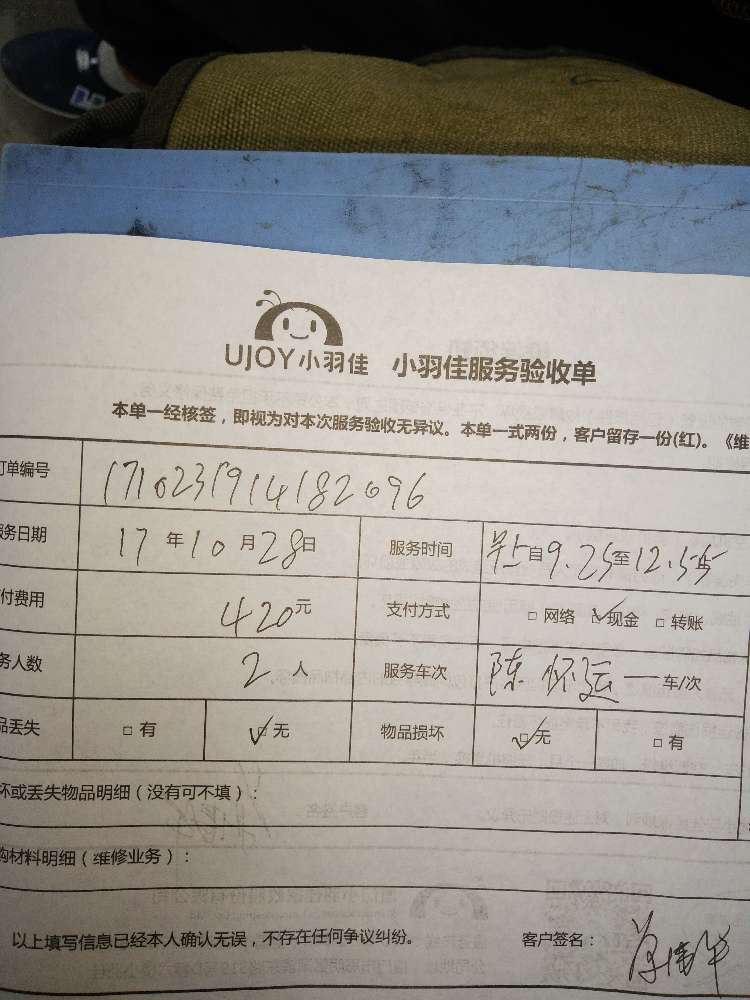 UJOY小羽佳 小羽佳服务验收单
本单一经核签，即视为对本次服务验收无异议。本单一式两份，客户留存一份(红)。《维
订单编号 1710231914182096
服务日期 17年10月28日 服务时间 自9.25至12.55
付费用 420元 支付方式 □网络 ☑现金 □转账
务人数 2人 服务车次 陈怀运一车/次
品丢失 □有 ☑无 物品损坏 ☑无 □有
坏或丢失物品明细（没有可不填）：
购材料明细（维修业务）：
以上填写信息已经本人确认无误，不存在任何争议纠纷。 客户签名：